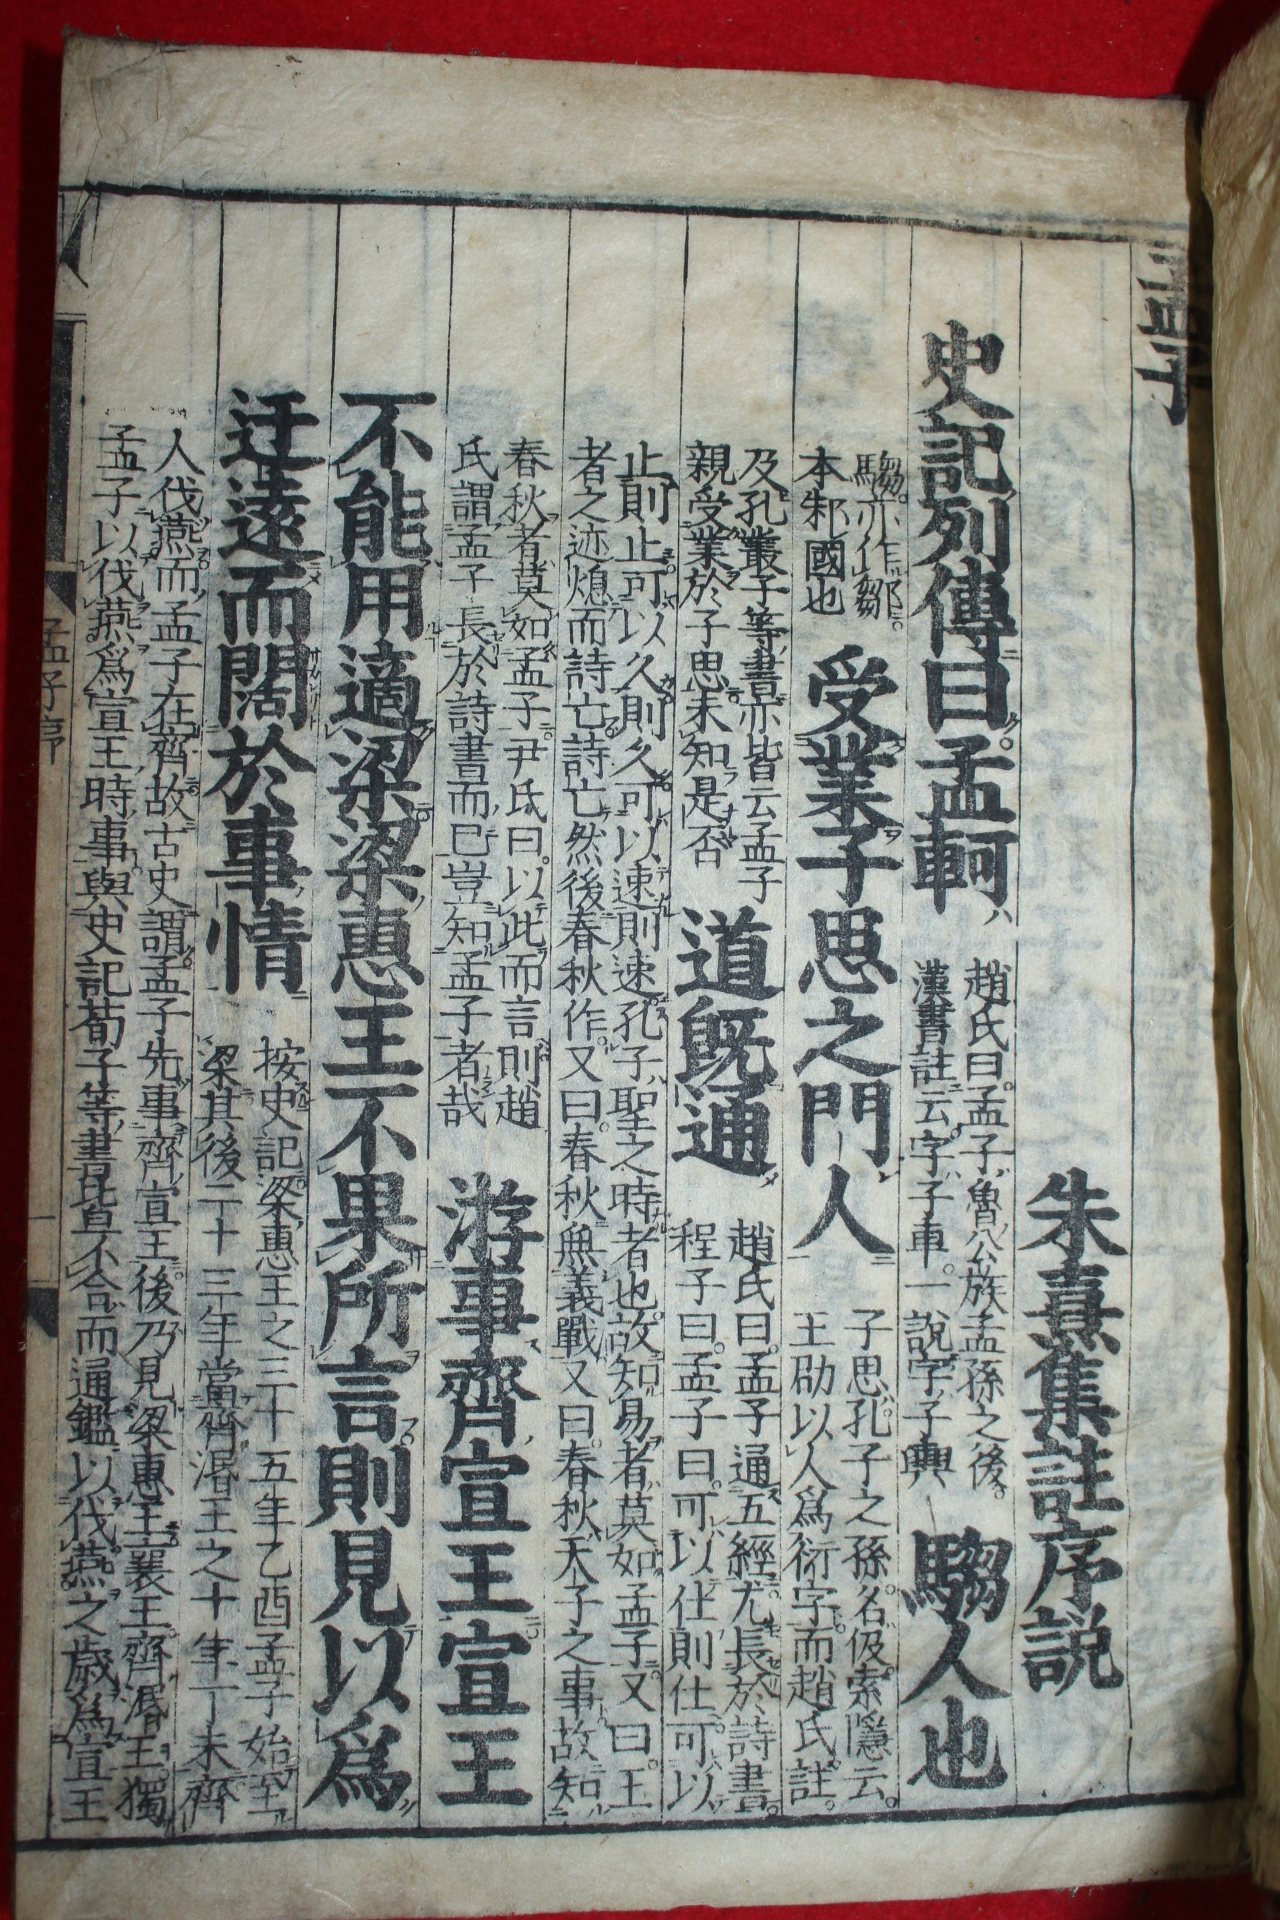 孟子
朱熹集註序說
史記列傳曰孟軻
趙氏曰孟子魯公族孟孫之後
漢書註云字子車一說字子輿
騶人也
騶亦作鄒
本邾國也
受業子思之門人
子思孔子之孫名伋索隱云
王劭以人爲衍字而趙氏註
及孔叢子等書亦皆云孟子
親受業於子思未知是否
道旣通
趙氏曰孟子通五經尤長於詩書
程子曰孟子曰可以仕則仕可以
止則止可以久則久可以速則速孔子聖之時者也故知易者莫如孟子又曰王
者之迹熄而詩亡詩亡然後春秋作又曰春秋無義戰又曰春秋天子之事故知
春秋者莫如孟子尹氏曰以此而言則趙
氏謂孟子長於詩書而已豈知孟子者哉
游事齊宣王宣王
不能用適梁梁惠王不果所言則見以爲
迂遠而闊於事情
按史記梁惠王之三十五年乙酉孟子始至
梁其後二十三年當齊湣王之十年丁未齊
人伐燕而孟子在齊故古史謂孟子先事齊宣王後乃見梁惠王襄王齊湣王獨
孟子以伐燕爲宣王時事與史記荀子等書皆不合而通鑑以伐燕之歲爲宣王
孟子序
一